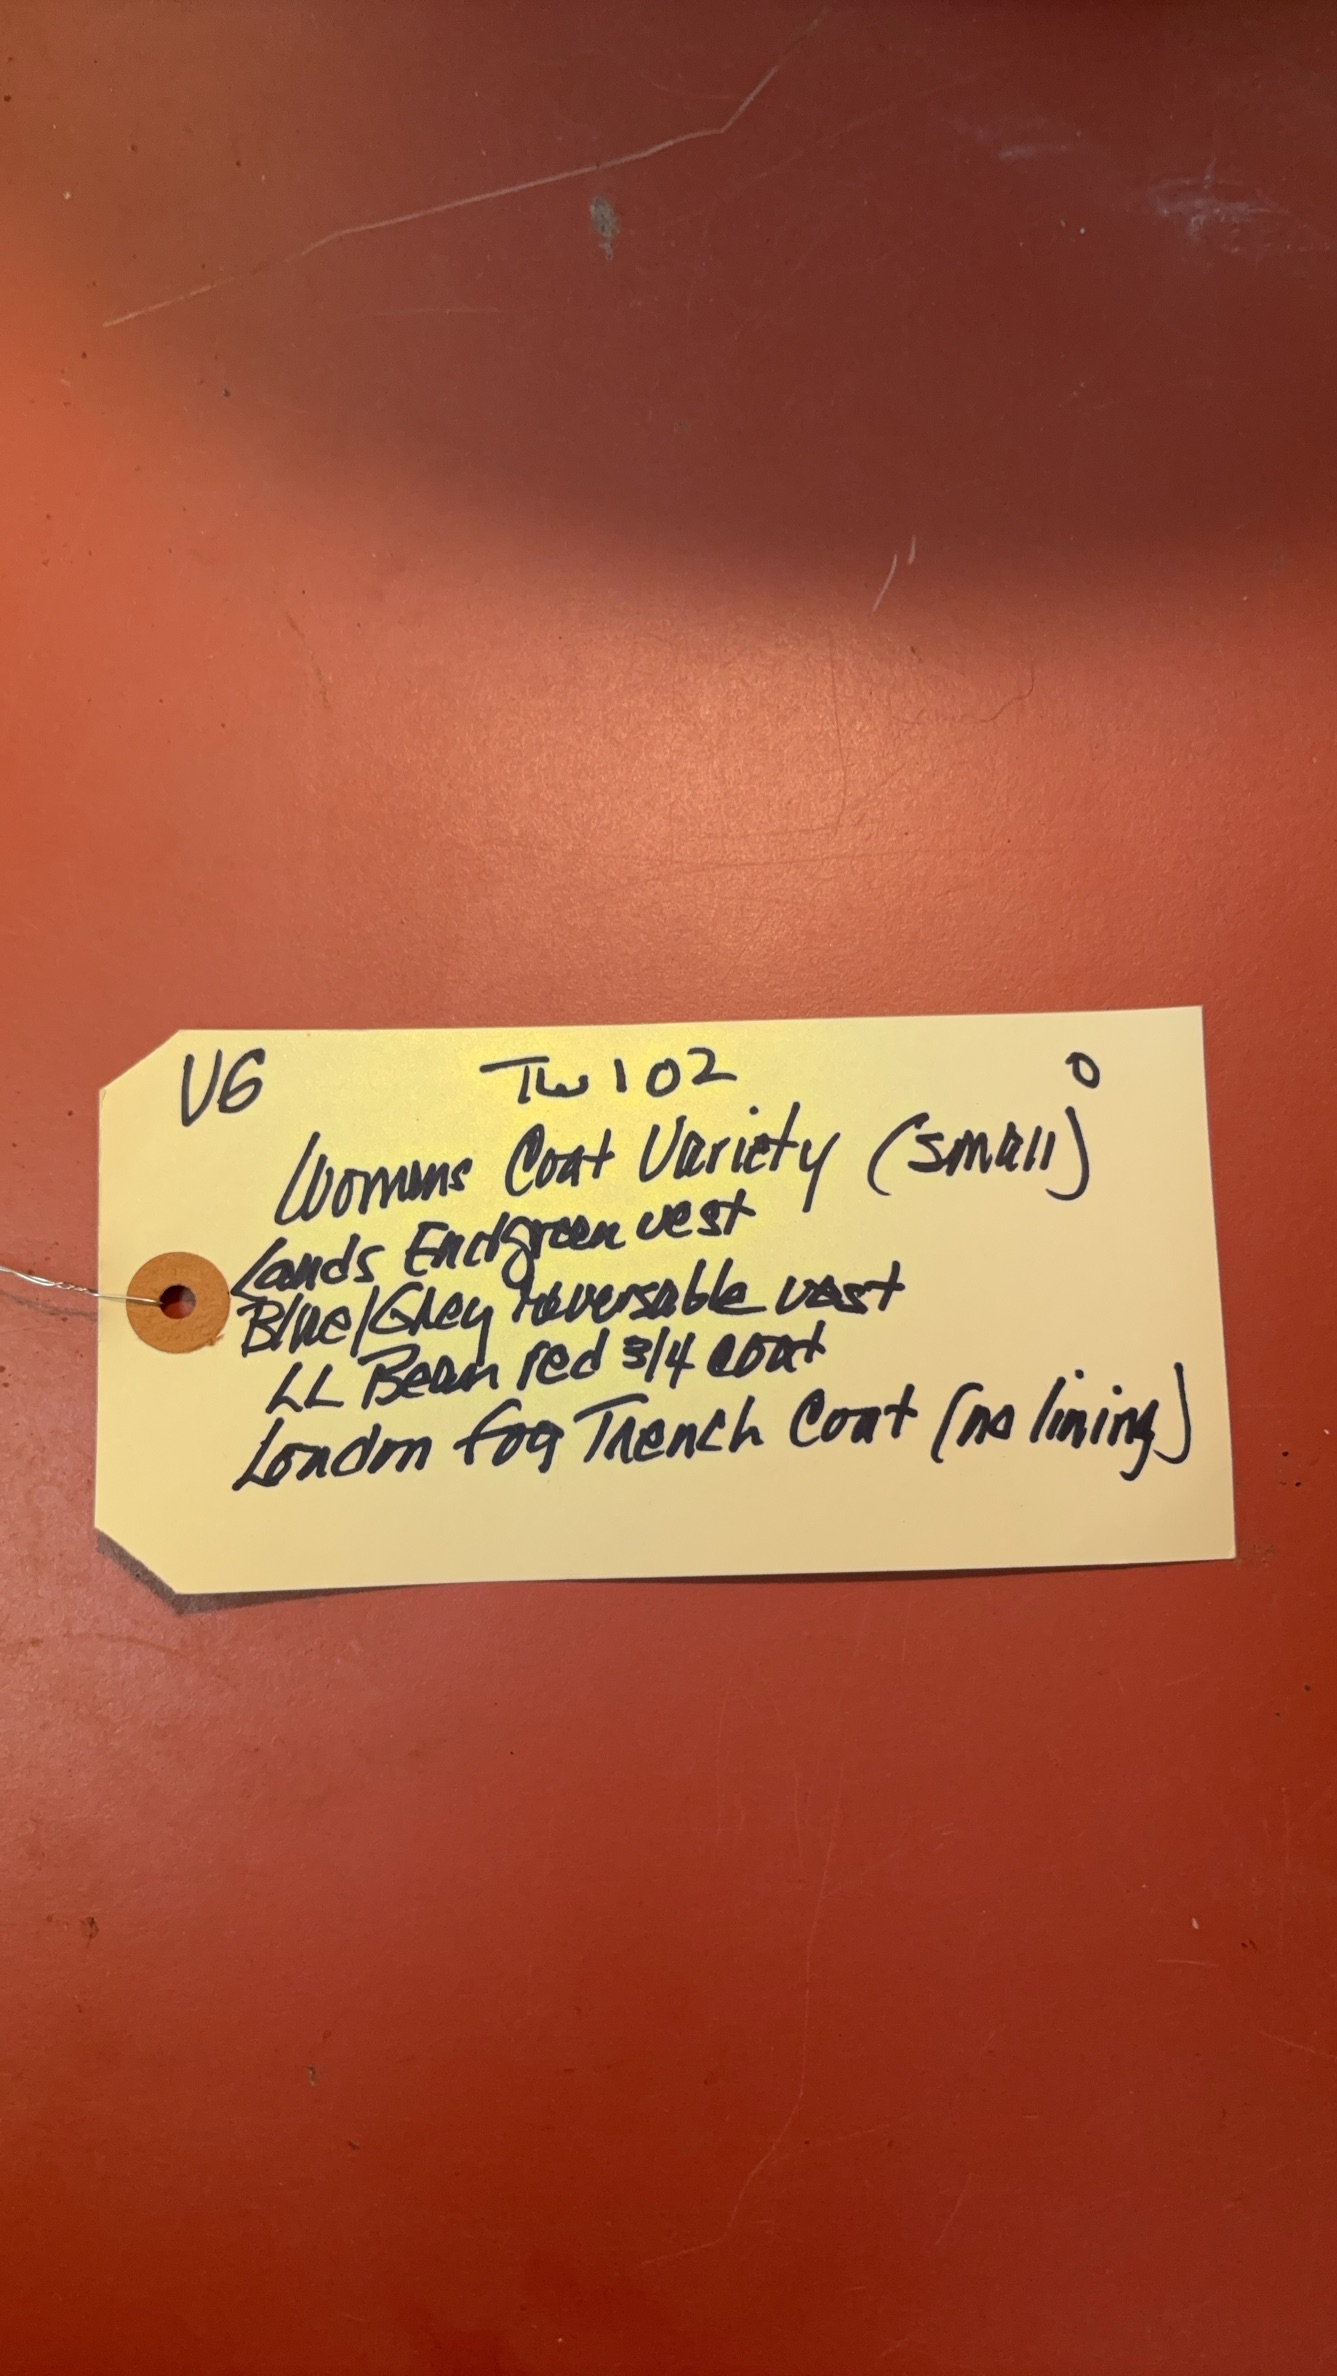 VG TW102 O
Womens Coat Variety (small)
Lands End green vest
Blue/Grey reversable vest
LL Bean red 3/4 coat
London fog Trench Coat (no lining)